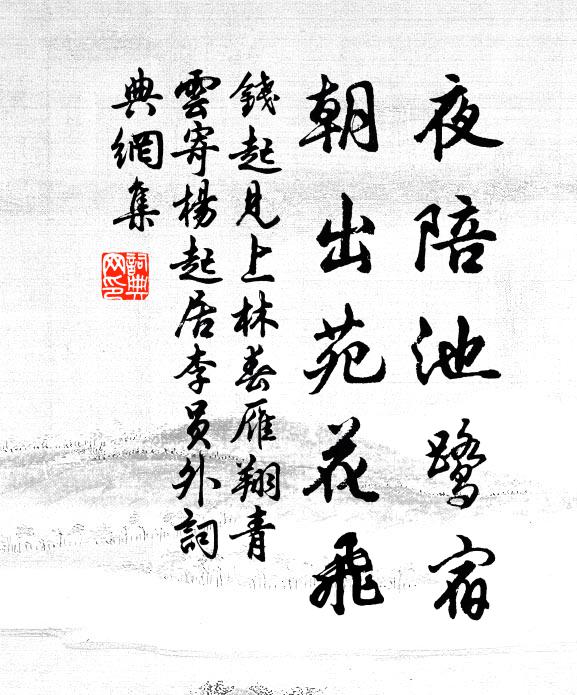 夜陪池鷺宿
朝出苑花飛
錢起見上林春雁翔青
雲寄楊起居李員外詞
典網集
詞典網印